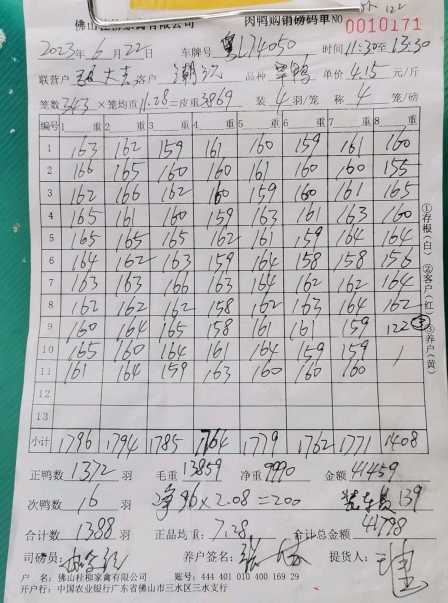 肉鸭购销磅码单 NO 0010171
2023年6月22日 车牌号 粤L74050 时间 11:30至13:30
联营户 客户 品种 单价 4.15 元/斤
笼数 343 ×笼均重 11.28 =皮重 3869 装 4 羽/笼 称 4 笼/磅
编号 1 重 2 重 3 重 4 重 5 重 6 重 7 重 8 重
1 163 162 159 161 160 159 161 160
2 166 165 160 160 161 160 160 155
3 162 166 162 160 159 160 161 165
4 165 161 160 159 163 161 163 160
5 165 165 165 162 161 159 164 164
6 164 162 163 159 164 158 158 156
7 163 163 166 163 164 162 162 164
8 162 162 162 158 162 163 164 162
9 160 164 165 158 161 161 159 122 ③
10 165 160 164 161 164 159 159
11 161 164 159 163 160 160 160
12
13
小计 1796 1794 1785 1764 1779 1762 1771 1408
①存根(白) ②客户(红) ③养户(黄)
正鸭数 1372 羽 毛重 13859 净重 9990 金额 41459
次鸭数 16 羽 净96×2.08=200 139
合计数 1388 羽 正品均重: 7.28 合计总金额 41798
司磅员: 养户签名: 提货人:
户 名: 佛山桂柳家禽有限公司 账号: 444 401 010 400 169 29
开户行: 中国农业银行广东省佛山市三水区三水支行